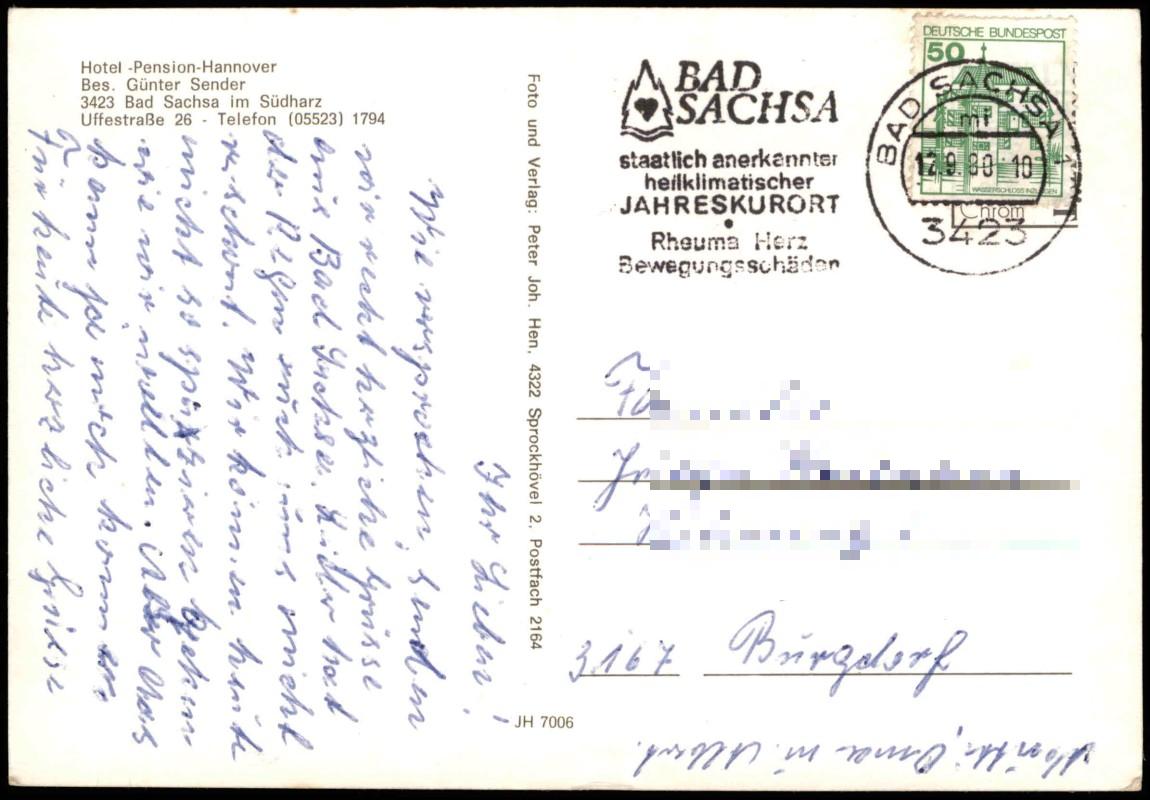 Hotel-Pension-Hannover
Bes. Günter Sender
3423 Bad Sachsa im Südharz
Uffestraße 26 - Telefon (05523) 1794
Ihr Lieben!
Wie versprochen, senden
wir recht herzliche Grüsse
aus Bad Sachsa. Leider hat
der Regen auch uns nicht
verschont. Wir können heute
nicht so spazieren gehen
wie wir wollten. Aber das
kann ja noch kommen
Für heute herzliche Grüsse
Oma u. Albert.
Foto und Verlag: Peter Joh. Hen, 4322 Sprockhövel 2, Postfach 2164
JH 7006
BAD
SACHSA
staatlich anerkannter
heilklimatischer
JAHRESKURORT
Rheuma Herz
Bewegungsschäden
DEUTSCHE BUNDESPOST
50
WASSERSCHLOSS INZLINGEN
BAD SACHSA 1
mi
12.9.80-10
3423
Chrom
3167 Burgdorf